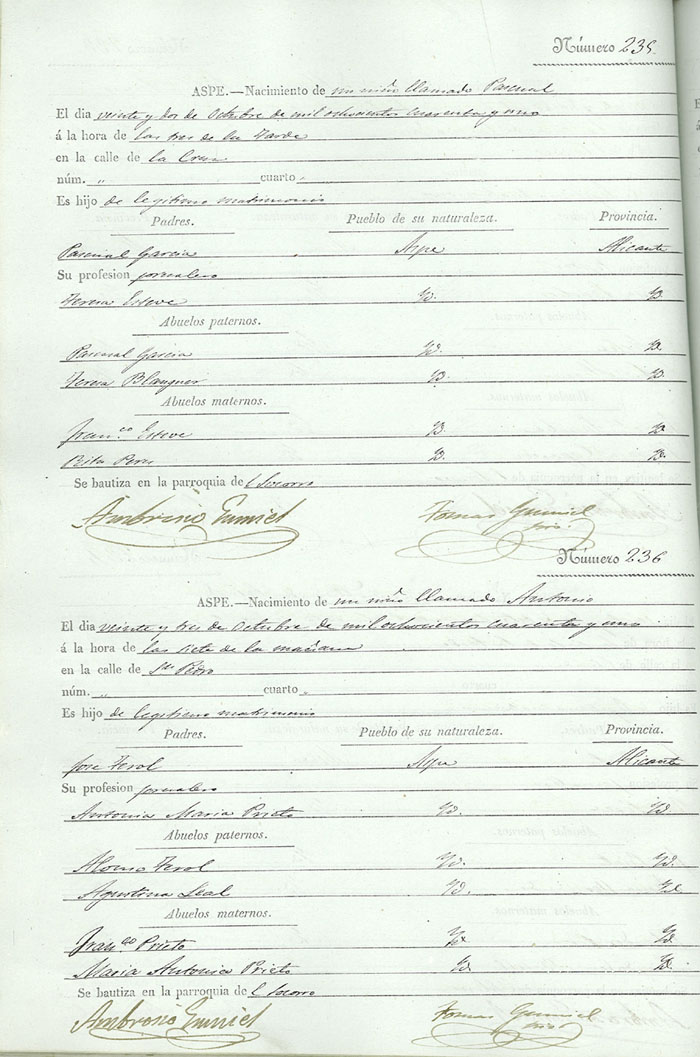 Número 235.
ASPE.—Nacimiento de un niño llamado Pascual
El dia veinte y dos de Octubre de mil ochocientos cuarenta y uno
á la hora de las tres de la tarde
en la calle de la Cruz
núm. „ cuarto „
Es hijo de legitimo matrimonio
Padres. Pueblo de su naturaleza. Provincia.
Pascual Garcia Aspe Alicante
Su profesion jornalero
Teresa Esteve Yd. Yd.
Abuelos paternos.
Pascual Garcia Yd. Yd.
Teresa Blasquer Yd. Yd.
Abuelos maternos.
Fran.co Esteve Yd. Yd.
Rita Peres Yd. Yd.
Se bautiza en la parroquia del Socorro
Ambrosio Gumiel Tomas Gumiel
Número 236
ASPE.—Nacimiento de un niño llamado Antonio
El dia veinte y tres de Octubre de mil ochocientos cuarenta y uno
á la hora de las siete de la mañana
en la calle de Sn. Pedro
núm. „ cuarto „
Es hijo de legitimo matrimonio
Padres. Pueblo de su naturaleza. Provincia.
Jose Ferol Aspe Alicante
Su profesion jornalero
Antonia Maria Prieto Yd. Yd.
Abuelos paternos.
Alonso Ferol Yd. Yd.
Agustina Leal Yd. Yd.
Abuelos maternos.
Fran.co Prieto Yd. Yd.
Maria Antonia Prieto Yd. Yd.
Se bautiza en la parroquia del Socorro
Ambrosio Gumiel Tomas Gumiel